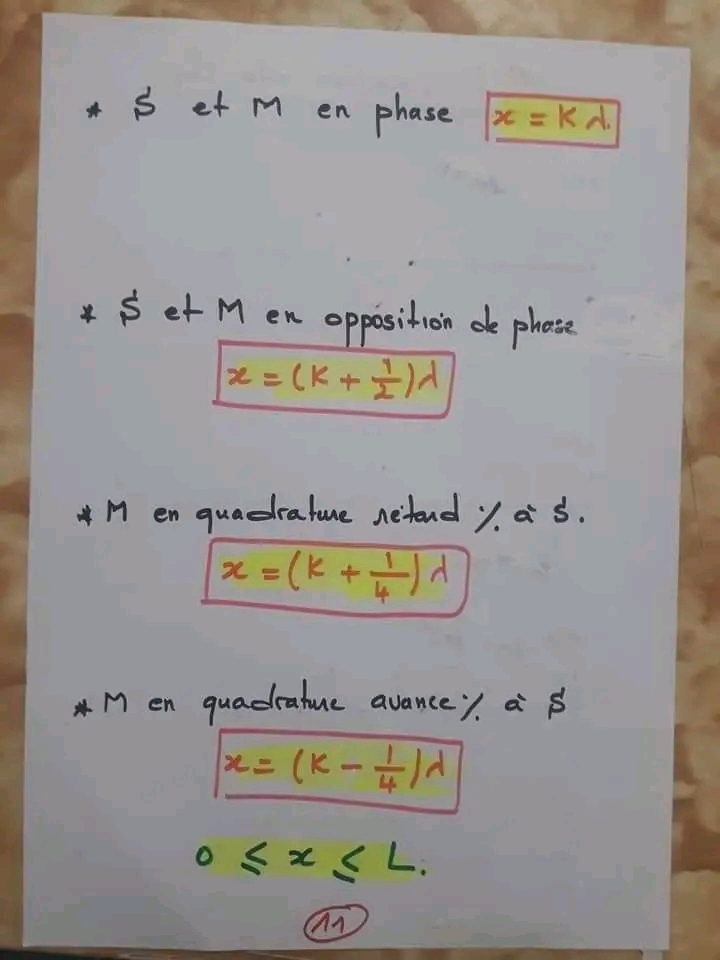 * S et M en phase x = K λ.
* S et M en opposition de phase
x = (K + 1/2) λ
* M en quadrature retard % à S.
x = (K + 1/4) λ
* M en quadrature avance % à S
x = (K - 1/4) λ
0 ≤ x ≤ L.
11